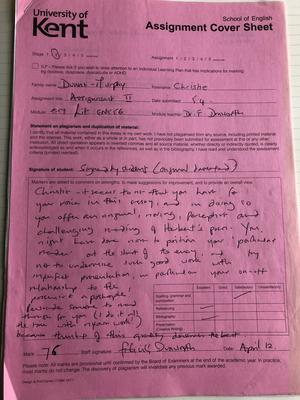 University of
Kent
School of English
Assignment Cover Sheet
Stage: 1 / 2 / 3 / 4 / 5
Assignment 1 / 2 / 3 / 4 / 5
ILP – Please tick if you wish to draw attention to an Individual Learning Plan that has implications for marking
(eg dyslexia, dyspraxia, dyscalculia or ADHD)
Family name
Forename
Assignment title Assignment II
Date submitted
Module
Module leader Dr F
Statement on plagiarism and duplication of material:
I certify that all material contained in this essay is my own work. I have not plagiarised from any source, including printed material
and the internet. This work, either as a whole or in part, has not previously been submitted for assessment at this or any other
institution. All direct quotation appears in inverted commas and all source material, whether directly or indirectly quoted, is clearly
acknowledged as and where it occurs in the references, as well as in the bibliography. I have read and understood the assessment
criteria (printed overleaf).
Signature of student: Signed by student (original
Markers are asked to comment on strengths, to make suggestions for improvement, and to provide an overall view.
it seems to me that you have found
your voice in this essay; and in doing so
you offer an unusual, moving, perceptive and
challenging reading of Herbert's poem. You
might have done more to position your particular
reader at the start of the essay and try
not to undermine such good work with
imperfect presentation, in particular your on-off
relationship to the
possessive apostrophe;
persuade someone to read
things for you (I do it all
the time with my own work!)
because thinking of this quality deserves the best
Excellent Good Satisfactory Unsatisfactory
Spelling, grammar and
punctuation
References
Bibliography
Presentation
(Creative Writing)
Mark 76
Staff signature
Date: April 12
All marks are provisional until confirmed by the Board of Examiners at the end of the academic year. In practice, most
marks do not change. The discovery of plagiarism will invalidate any previous mark awarded.